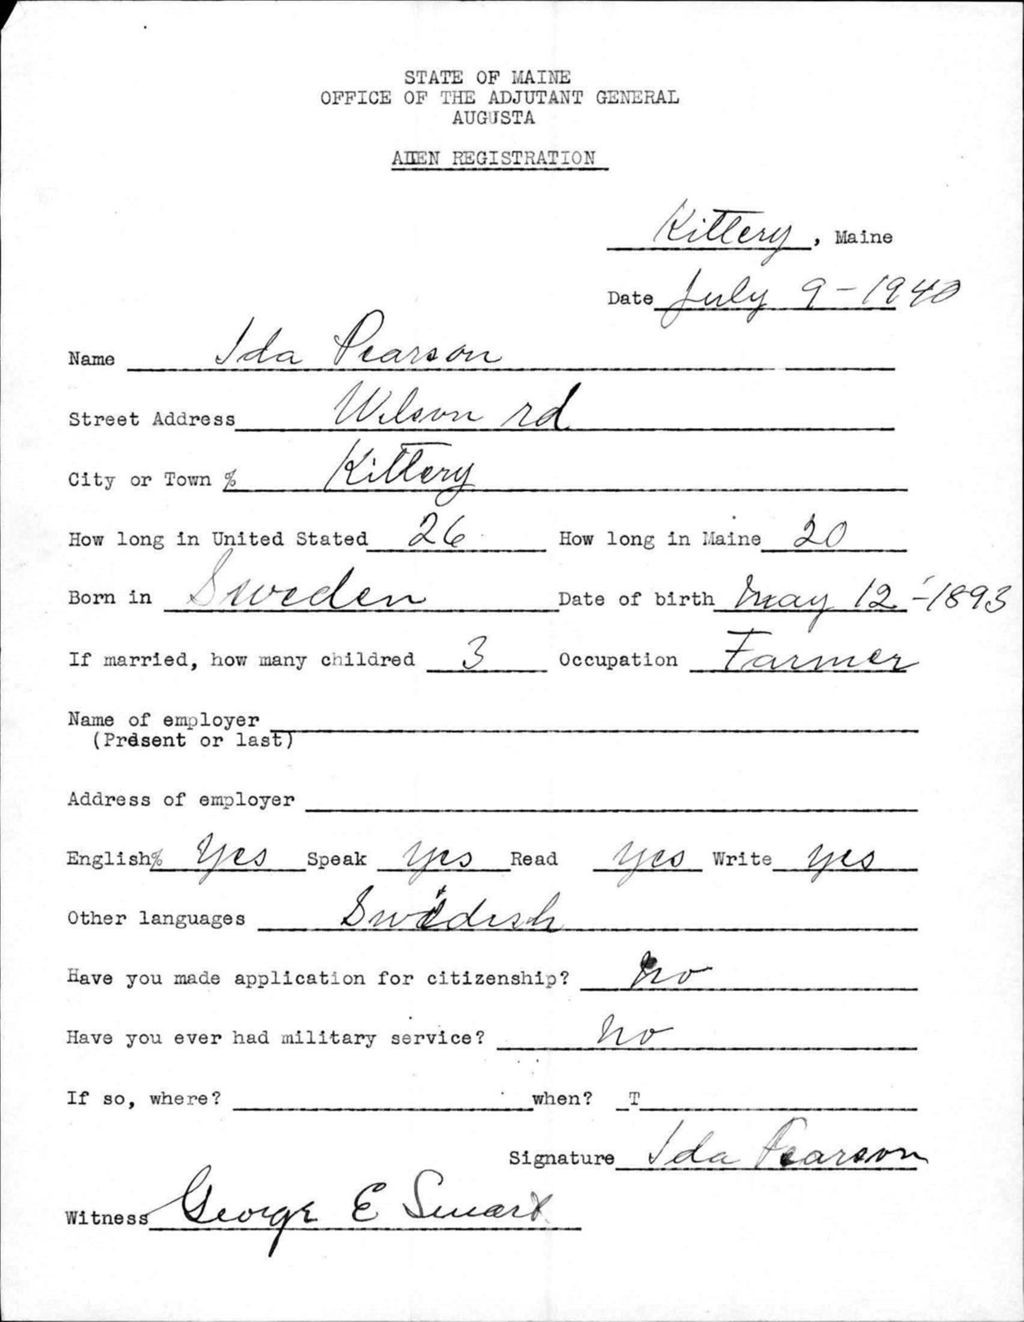 STATE OF MAINE
OFFICE OF THE ADJUTANT GENERAL
AUGUSTA
ALIEN REGISTRATION
Kittery, Maine
Date July 9-1940
Name Ida Pearson
Street Address Wilson rd
City or Town % Kittery
How long in United Stated 26 How long in Maine 20
Born in Sweden Date of birth May 12-1893
If married, how many childred 3 Occupation Farmer
Name of employer
(Present or last)
Address of employer
English% Yes Speak yes Read yes Write yes
Other languages Swedish
Have you made application for citizenship? no
Have you ever had military service? no
If so, where? when? T
Signature Ida Pearson
Witness George E Smart